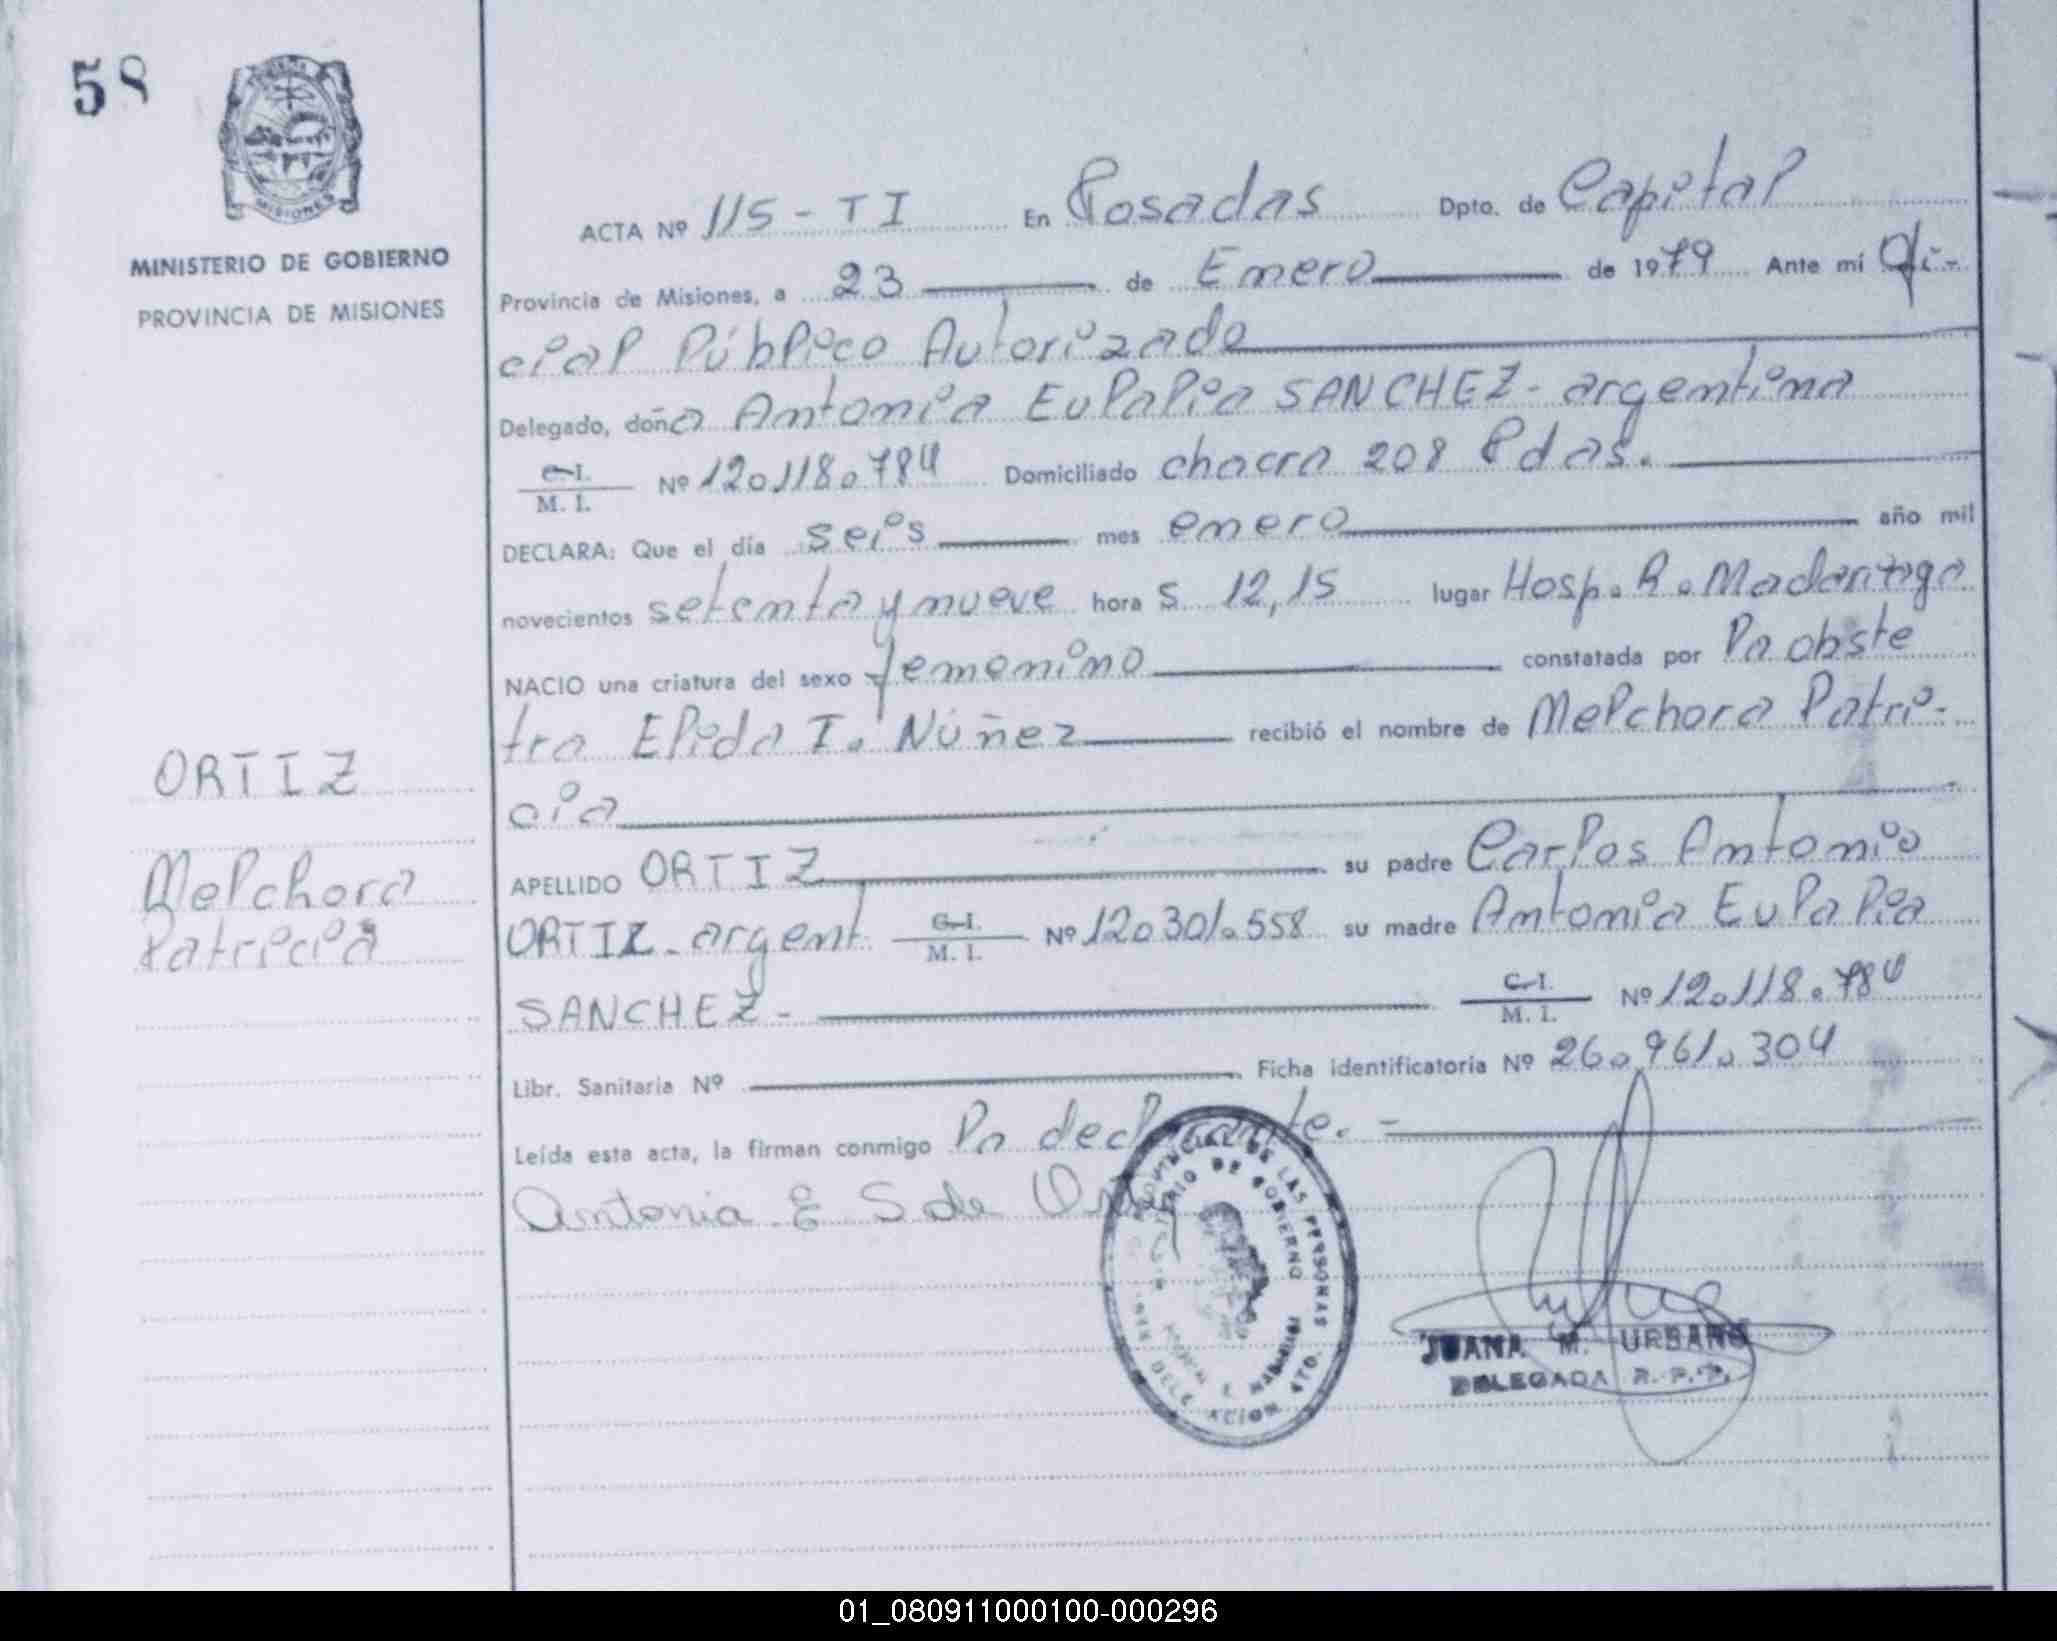 58
MISIONES
MINISTERIO DE GOBIERNO
PROVINCIA DE MISIONES
ORTIZ
Melchora
Patricia
ACTA Nº 115 - T I En Posadas Dpto. de Capital
Provincia de Misiones, a 23 de Enero de 1979 Ante mí Ofi-
cial Público Autorizado
Delegado, doña Antonia Eulalia SANCHEZ - argentina
C.I. M. I. Nº 12.118.784 Domiciliado chacra 208 Pdas.
DECLARA: Que el día seis mes enero año mil
novecientos setenta y nueve hora s 12,15 lugar Hosp. R. Madariaga
NACIO una criatura del sexo femenino constatada por la obste
tra Elida I. Núñez recibió el nombre de Melchora Patri-
cia
APELLIDO ORTIZ su padre Carlos Antonio
ORTIZ - argent. C.I. M. I. Nº 12.301.558 su madre Antonia Eulalia
SANCHEZ - C.I. M. I. Nº 12.118.784
Libr. Sanitaria Nº Ficha identificatoria Nº 26.961.304
Leída esta acta, la firman conmigo la declarante. -
Antonia E S de
DE LAS PERSONAS
DE GOBIERNO
JUANA M. URBANO
DELEGADA R. P. P.
01_080911000100-000296